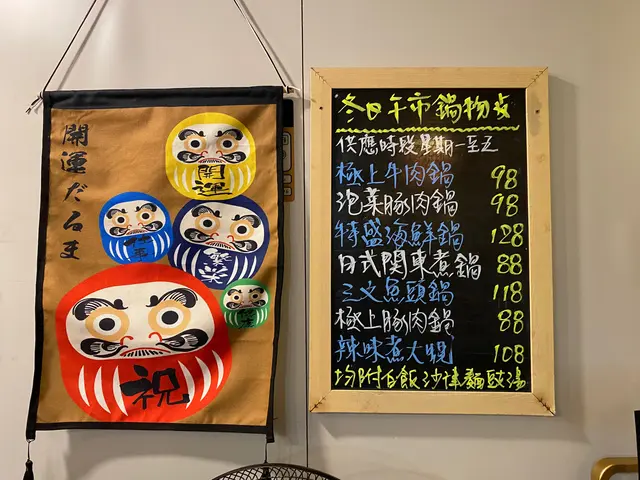 開運だるま
開運
繁栄
祝
冬日午市鍋物类
供應時段星期一至五
極上牛肉鍋 98
泡菜豚肉鍋 98
特盛海鮮鍋 128
日式関東煮鍋 88
三文魚頭鍋 118
極上豚肉鍋 88
辣味煮大蜆 108
均附白飯沙律麵豉湯